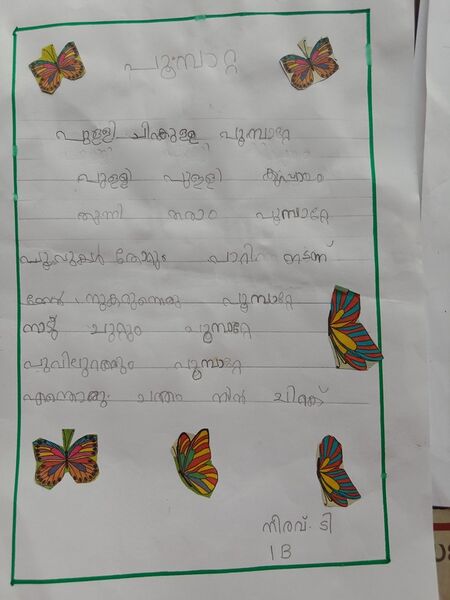 പൂമ്പാറ്റ
പുള്ളി ചിറകുള്ള പൂമ്പാറ്റേ
പുള്ളി പുള്ളി കുപ്പായം
തുന്നി തരാം പൂമ്പാറ്റേ
പൂവുകൾ തോറും പാറി നടന്ന്
തേൻ നുകരുന്നൊരു പൂമ്പാറ്റേ
നാടു ചുറ്റും പൂമ്പാറ്റേ
പൂമ്പാറ്റേ
എന്തൊരു ചന്തം നിൻ ചിറക്
നീരവ്. ടി
1 B